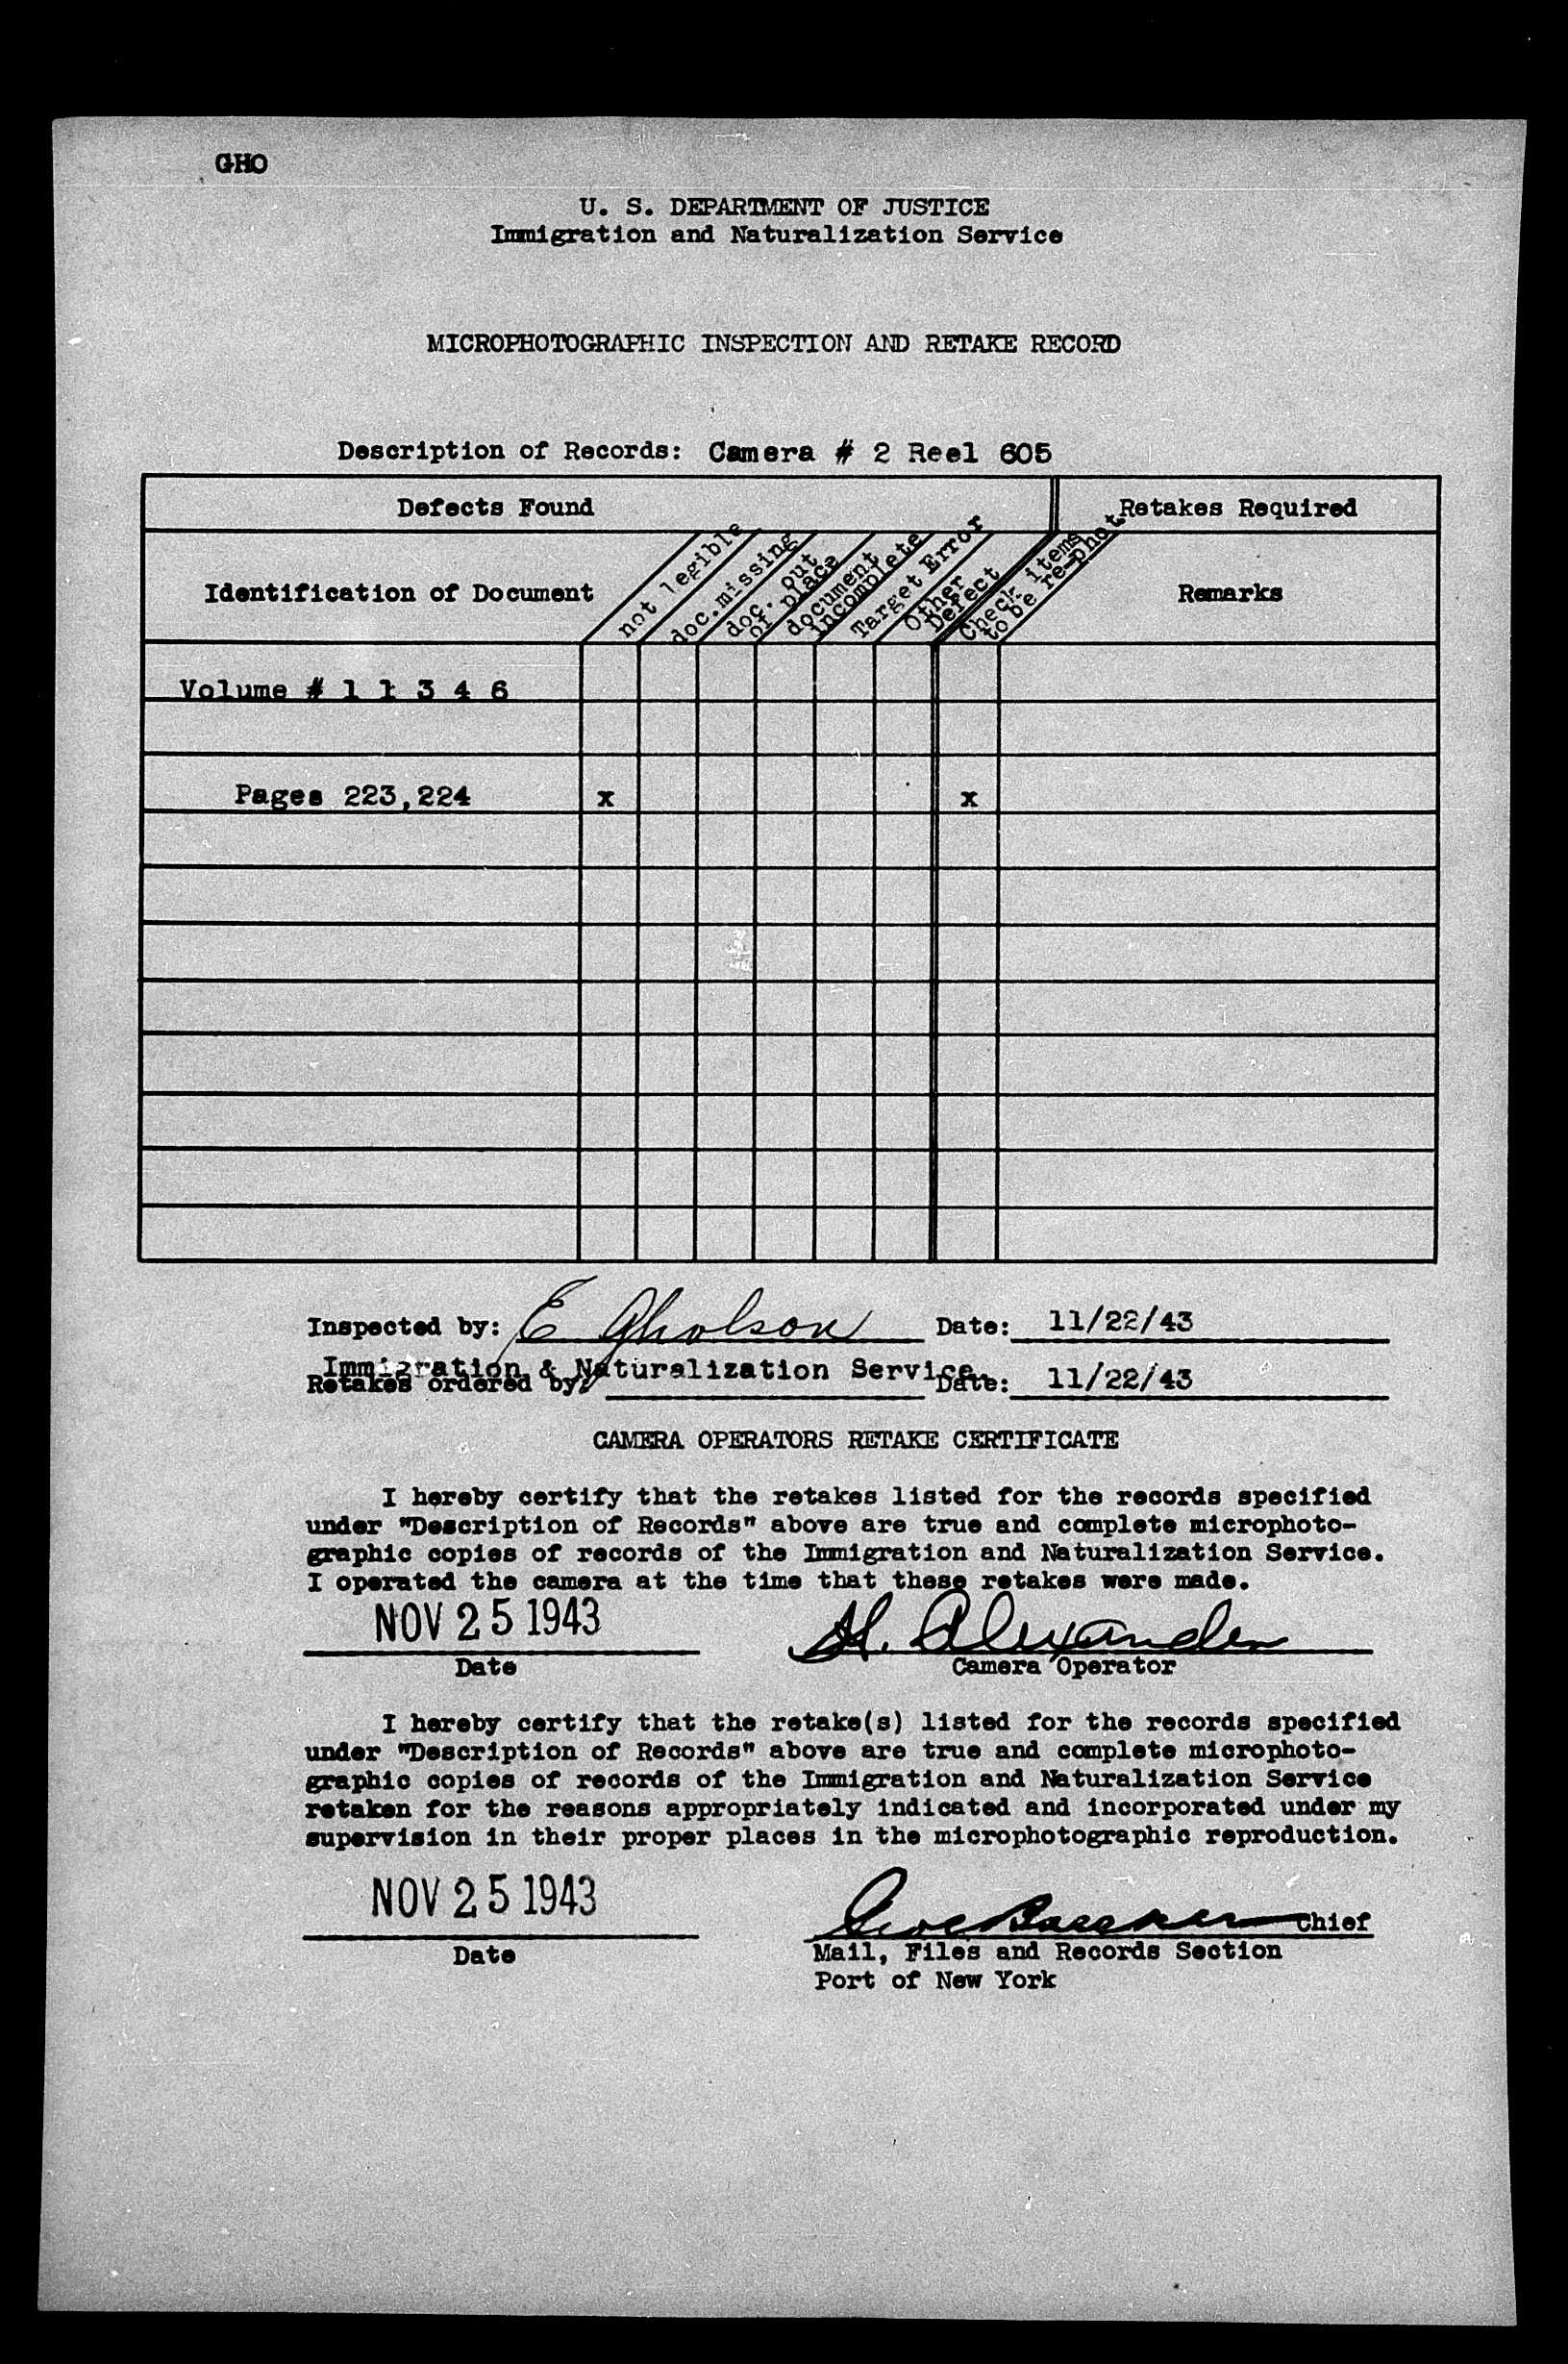 GHO
U. S. DEPARTMENT OF JUSTICE
Immigration and Naturalization Service
MICROPHOTOGRAPHIC INSPECTION AND RETAKE RECORD
Description of Records: Camera # 2 Reel 605
Defects Found
Retakes Required
Identification of Document
not legible
doc. missing
doc. out
of place
document
incomplete
Target Error
Other
Defect
Check items
to be re-phot
Remarks
Volume # 1 1 3 4 6
Pages 223,224 x x
Inspected by: E Gholson Date: 11/22/43
Immigration & Naturalization Service
Retakes ordered by: Date: 11/22/43
CAMERA OPERATORS RETAKE CERTIFICATE
I hereby certify that the retakes listed for the records specified
under "Description of Records" above are true and complete microphoto-
graphic copies of records of the Immigration and Naturalization Service.
I operated the camera at the time that these retakes were made.
NOV 25 1943 H. Alexander
Date Camera Operator
I hereby certify that the retake(s) listed for the records specified
under "Description of Records" above are true and complete microphoto-
graphic copies of records of the Immigration and Naturalization Service
retaken for the reasons appropriately indicated and incorporated under my
supervision in their proper places in the microphotographic reproduction.
NOV 25 1943 Chief
Date Mail, Files and Records Section
Port of New York